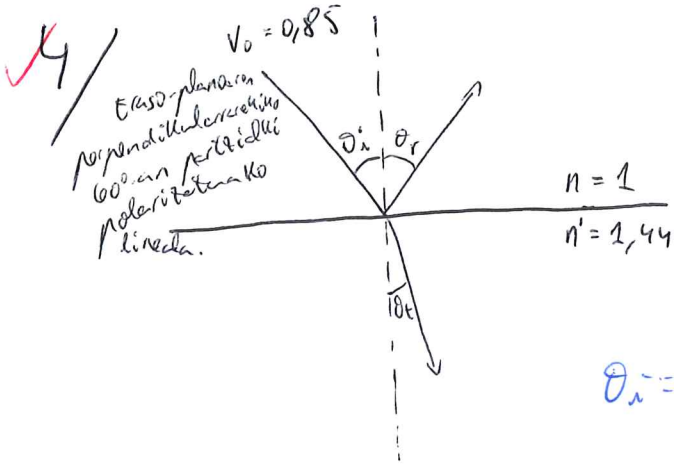 4/
V₀ = 0,85
Eraso-planoaren
perpendikularrarekiko
60°-an partzialki
polarizatutako
lineala.
θi θr
n = 1
n' = 1,44
θt
θi =